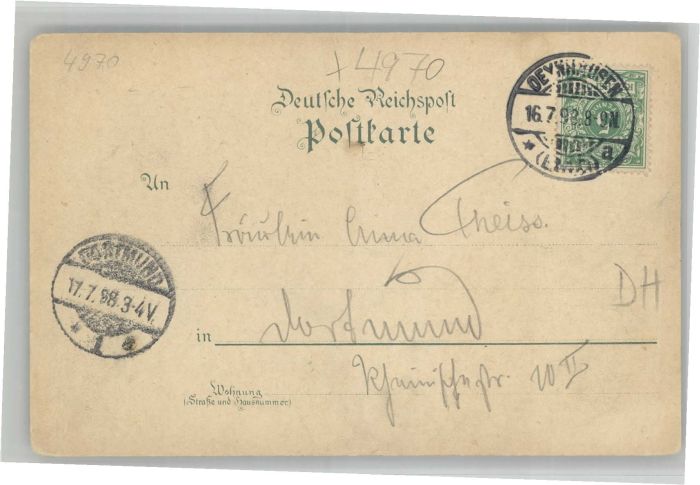 4970
+4970
Deutsche Reichspost
Postkarte
OEYNHAUSEN
16.7.98.8-9N
a
An
Fräulein Anna Theiss.
DORTMUND
17.7.98.3-4V.
* 1 e
DH
in Dortmund
10 II
Wohnung
(Straße und Hausnummer)